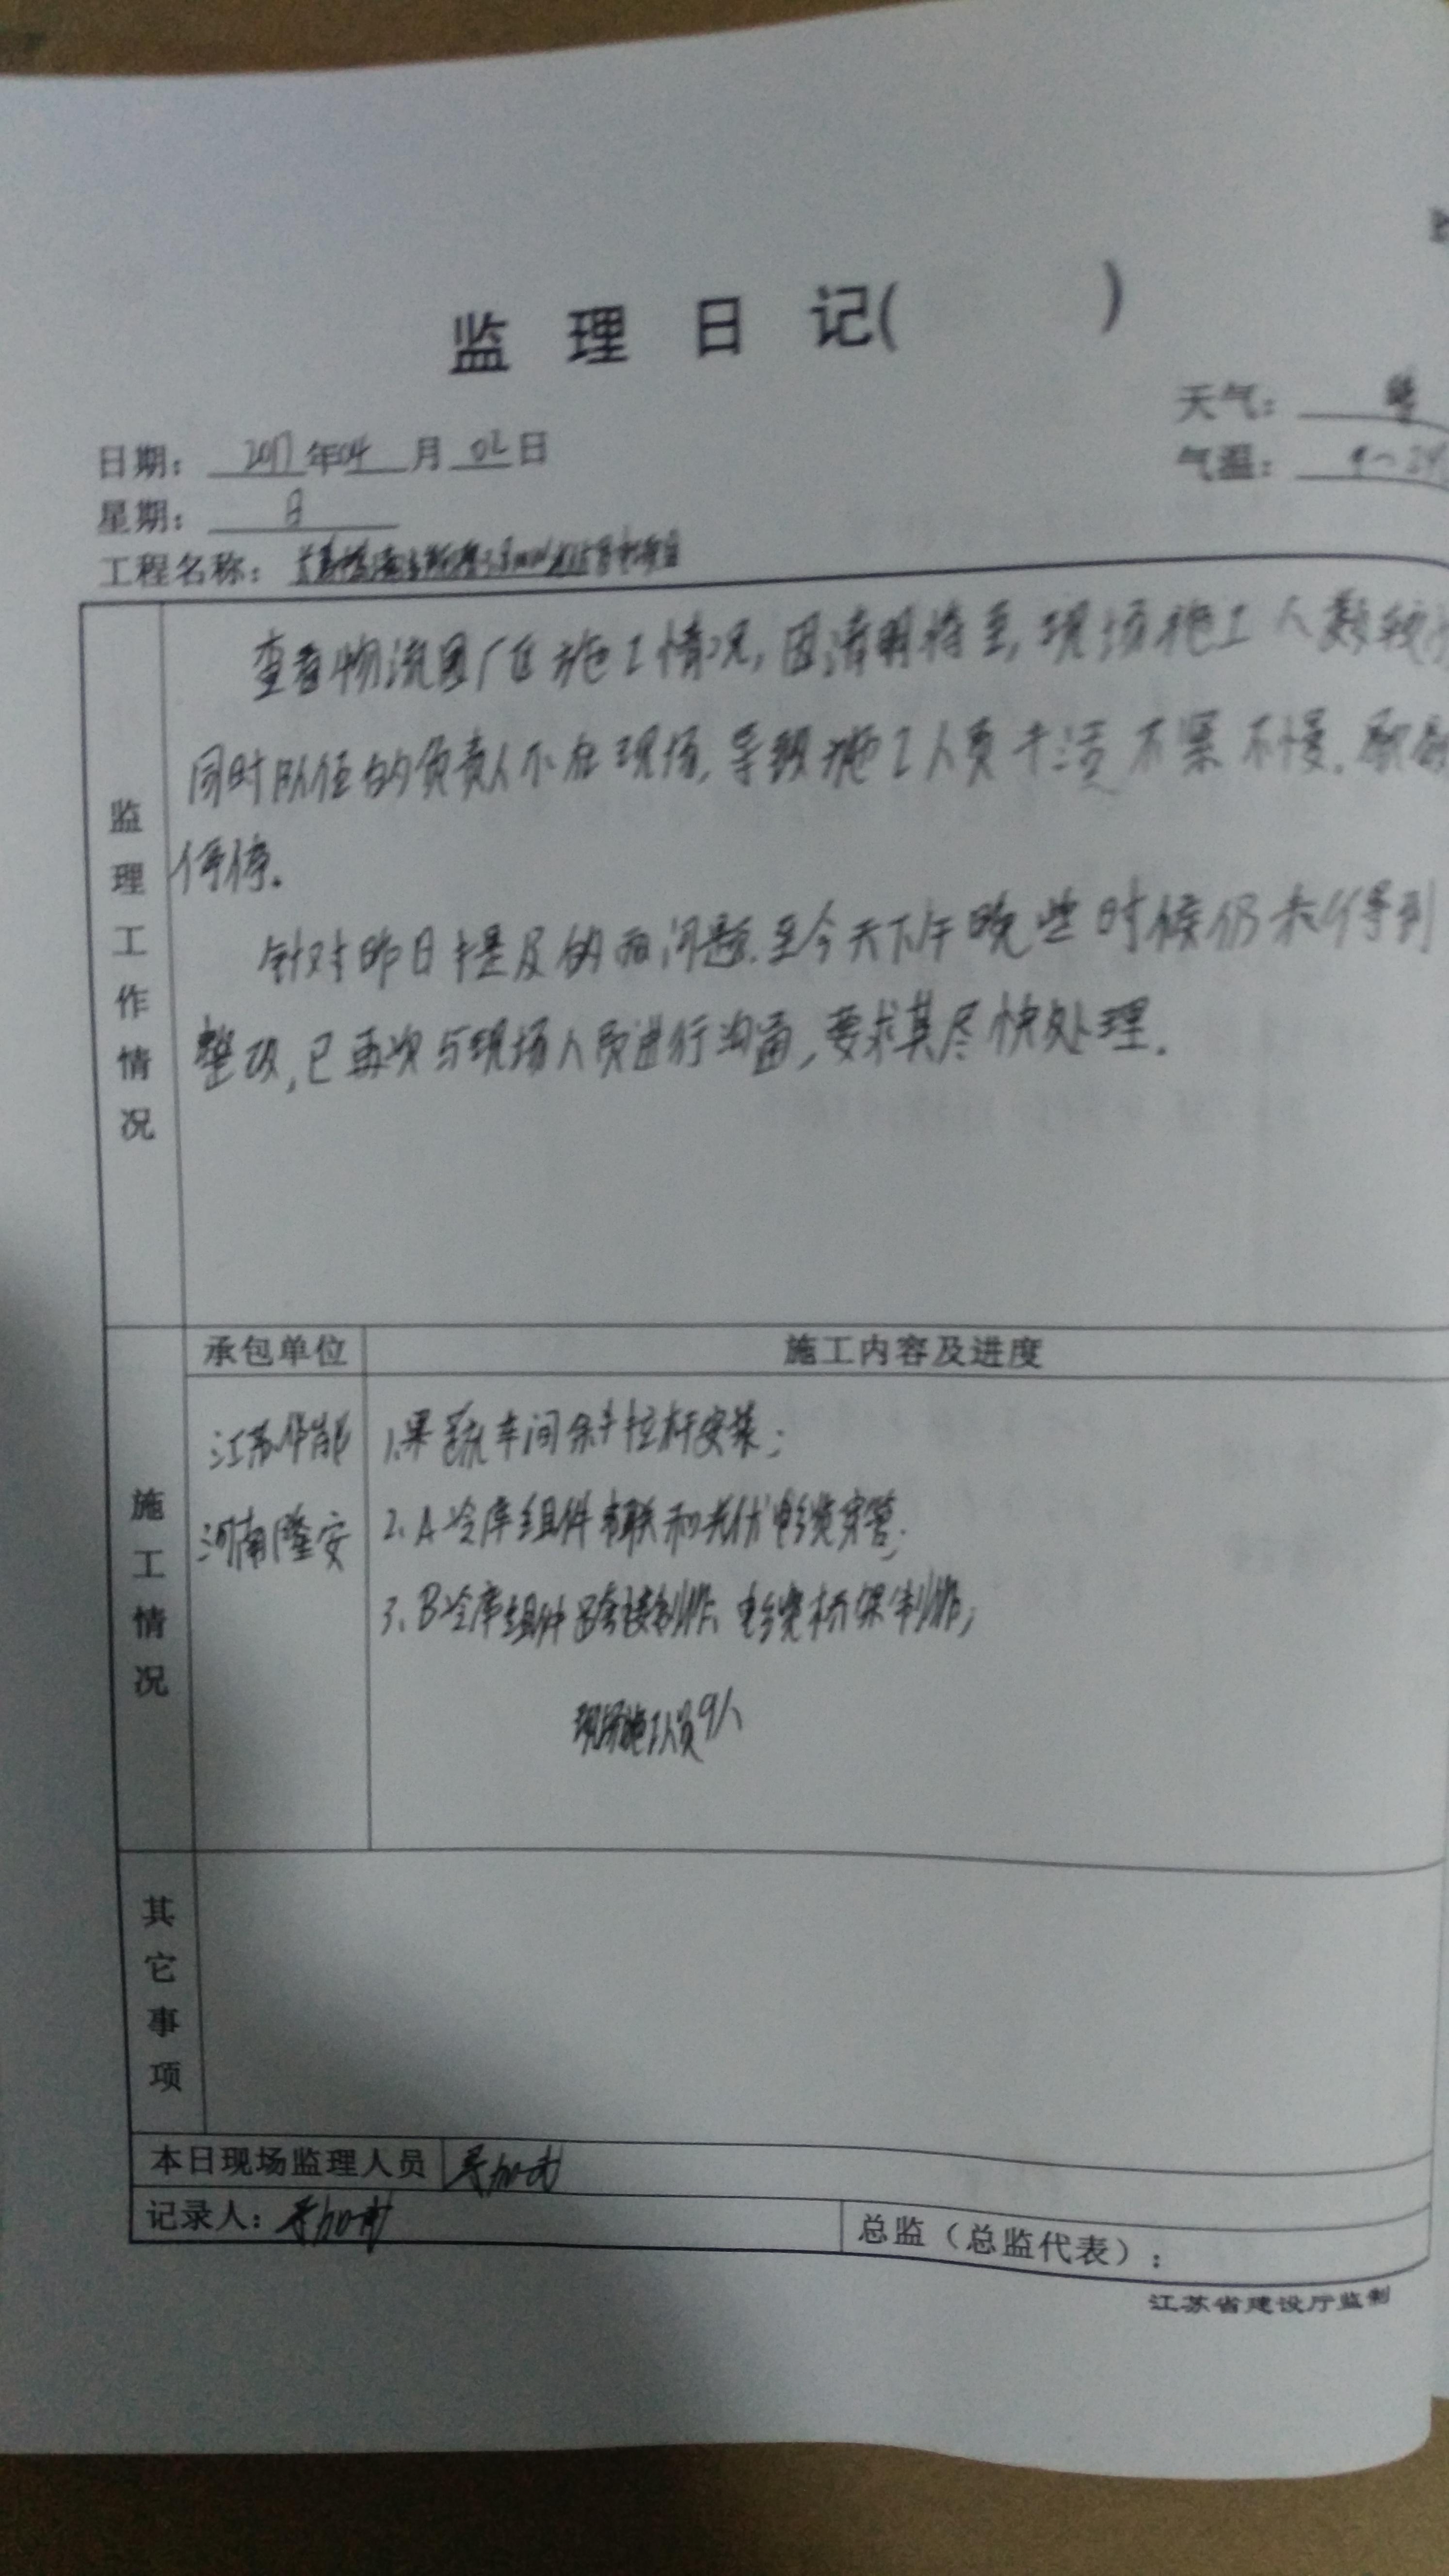 监理日记( )
天气：晴
日期：2017年04月02日
气温：9~24
星期：日
工程名称：
监理工作情况
查看物流园厂区施工情况，因清明将至，现场施工人数较
同时队伍的负责人不在现场，导致施工人员干活不紧不慢，歇歇
停停。
针对昨日提及的两问题，至今天下午晚些时候仍未得到
整改，已再次与现场人员进行沟通，要求其尽快处理。
施工情况
承包单位 施工内容及进度
江苏华能
河南隆安
1、果蔬车间斜拉杆安装；
2、A冷库组件串联和光伏电缆穿管；
3、B冷库组件跨接制作、电缆桥架制作；
现场施工人员9人
其它事项
本日现场监理人员
记录人：
总监（总监代表）：
江苏省建设厅监制